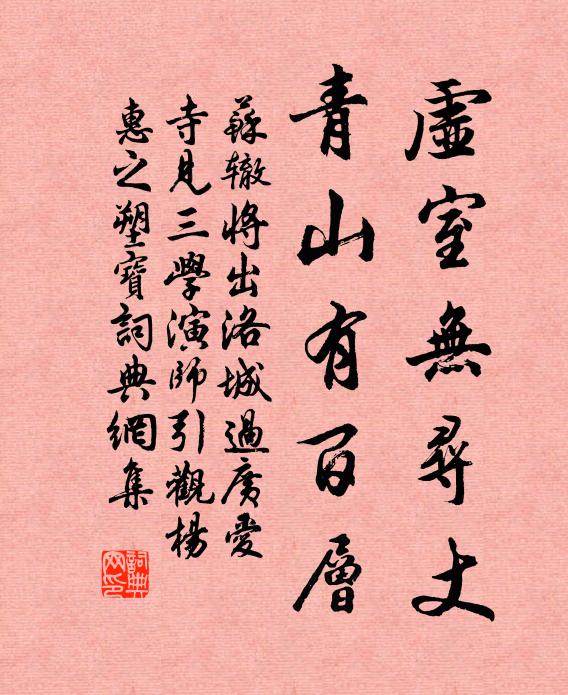 虛室無尋丈
青山有百層
蘇辙將出洛城過廣愛
寺見三學演師引觀楊
惠之塑寶詞典網集
詞典網印